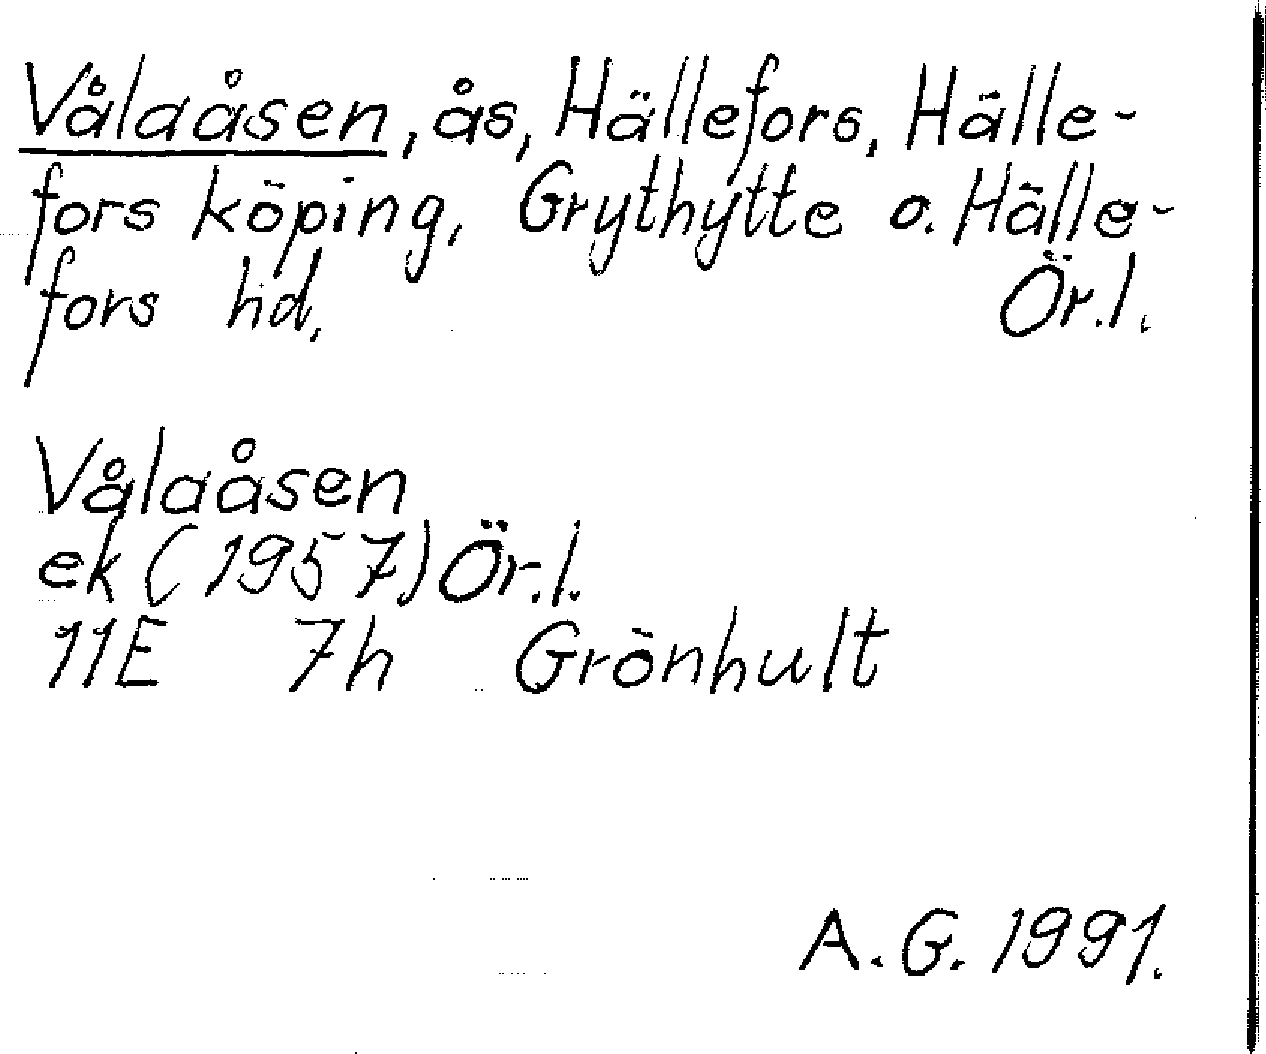 Vålaåsen, ås, Hällefors, Hälle-
fors köping, Grythytte o. Hälle-
fors hd, Ör.l.
Vålaåsen
ek (1957) Ör.l.
11E 7h Grönhult
A.G. 1991.